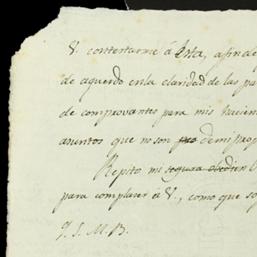 V. contestarme á esta, afin de
de aguerdo en la claridad de las pa
de comprovantes para mis haciend
asuntos que no son pro demi prop
Repito mi segura obedien
para complacer á V., como que so
Q. S. M. B.